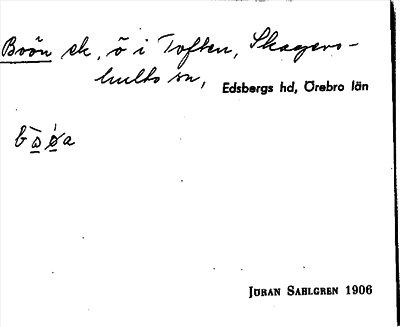 Boön ek, ö i Toften, Skagers-
hults sn, Edsbergs hd, Örebro län
JÖRAN SAHLGREN 1906